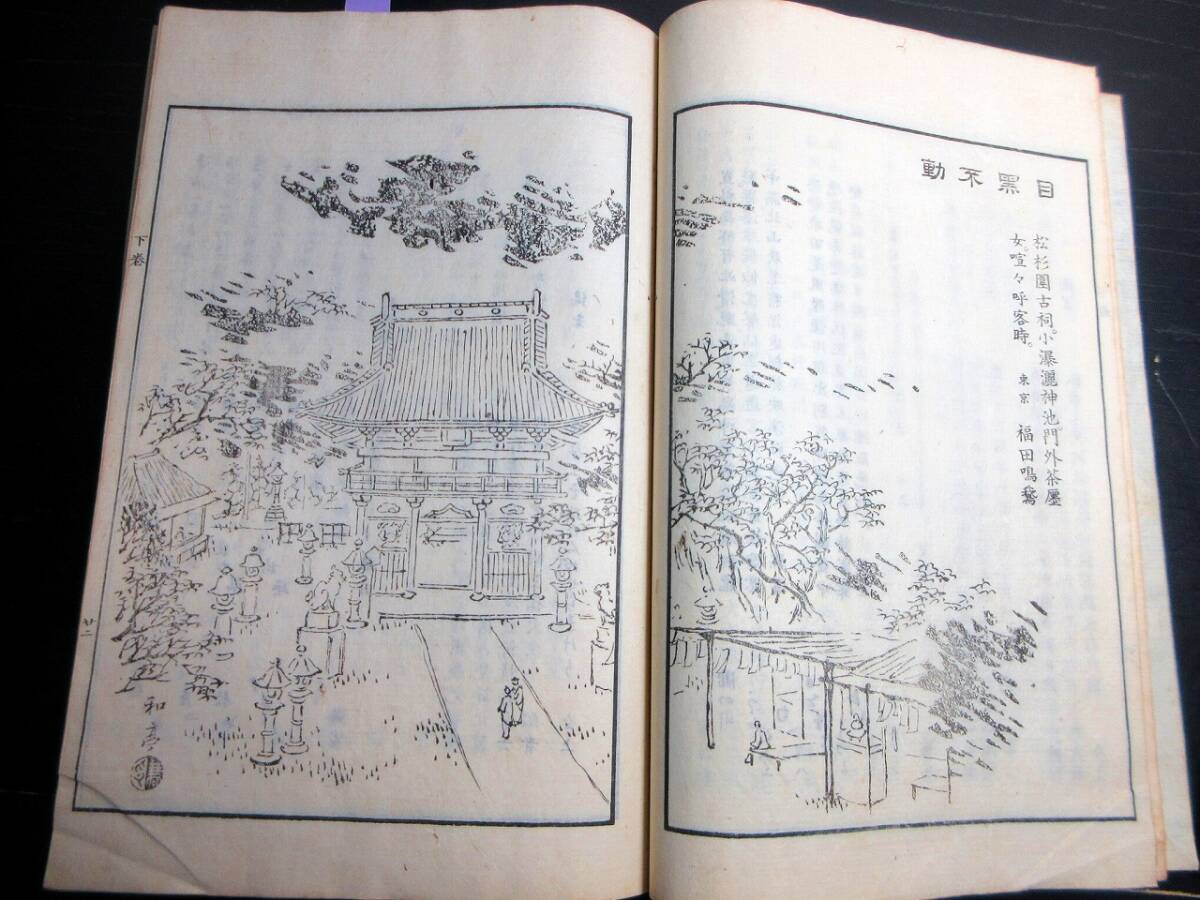 目黑不動
松杉圍古祠。小瀑灑神池。門外茶屋
女。喧々呼客時。
東京 福田鳴鵞
下卷
廿二
和亭